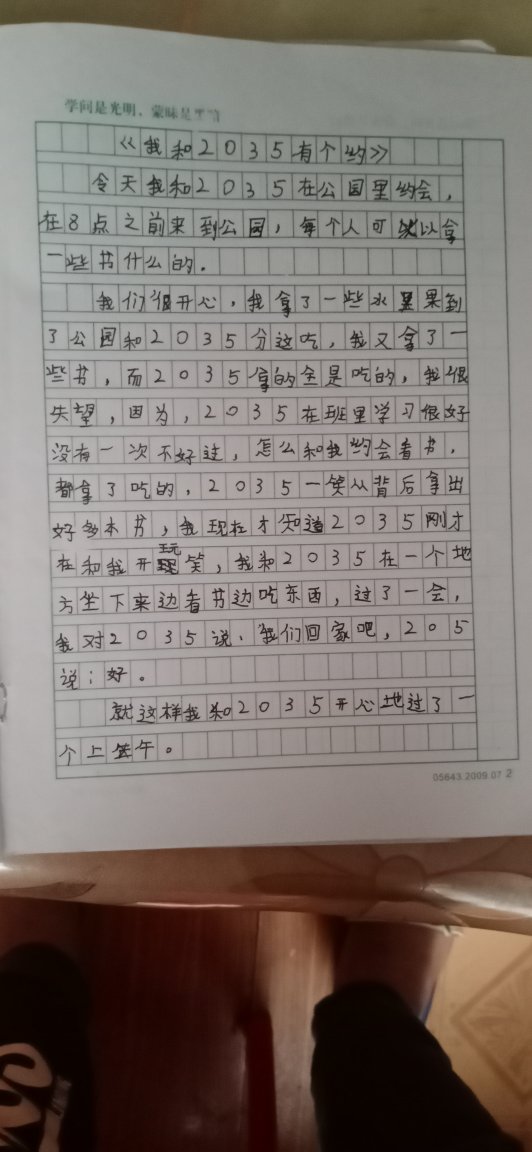 学问是光明，蒙昧是黑暗
《我和2035有个约》
今天我和2035在公园里约会，
在8点之前来到公园，每个人可以拿
一些书什么的.
我们很开心，我拿了一些水果到
了公园和2035分这吃，我又拿了一
些书，而2035拿的全是吃的，我很
失望，因为，2035在班里学习很好
没有一次不好过，怎么和我约会看书，
都拿了吃的，2035一笑从背后拿出
好多本书，我现在才知道2035刚才
在和我开玩笑，我和2035在一个地
方坐下来边看书边吃东西，过了一会，
我对2035说、我们回家吧，205
说：好。
就这样我和2035开心地过了一
个上午。
05643.2009.07 2